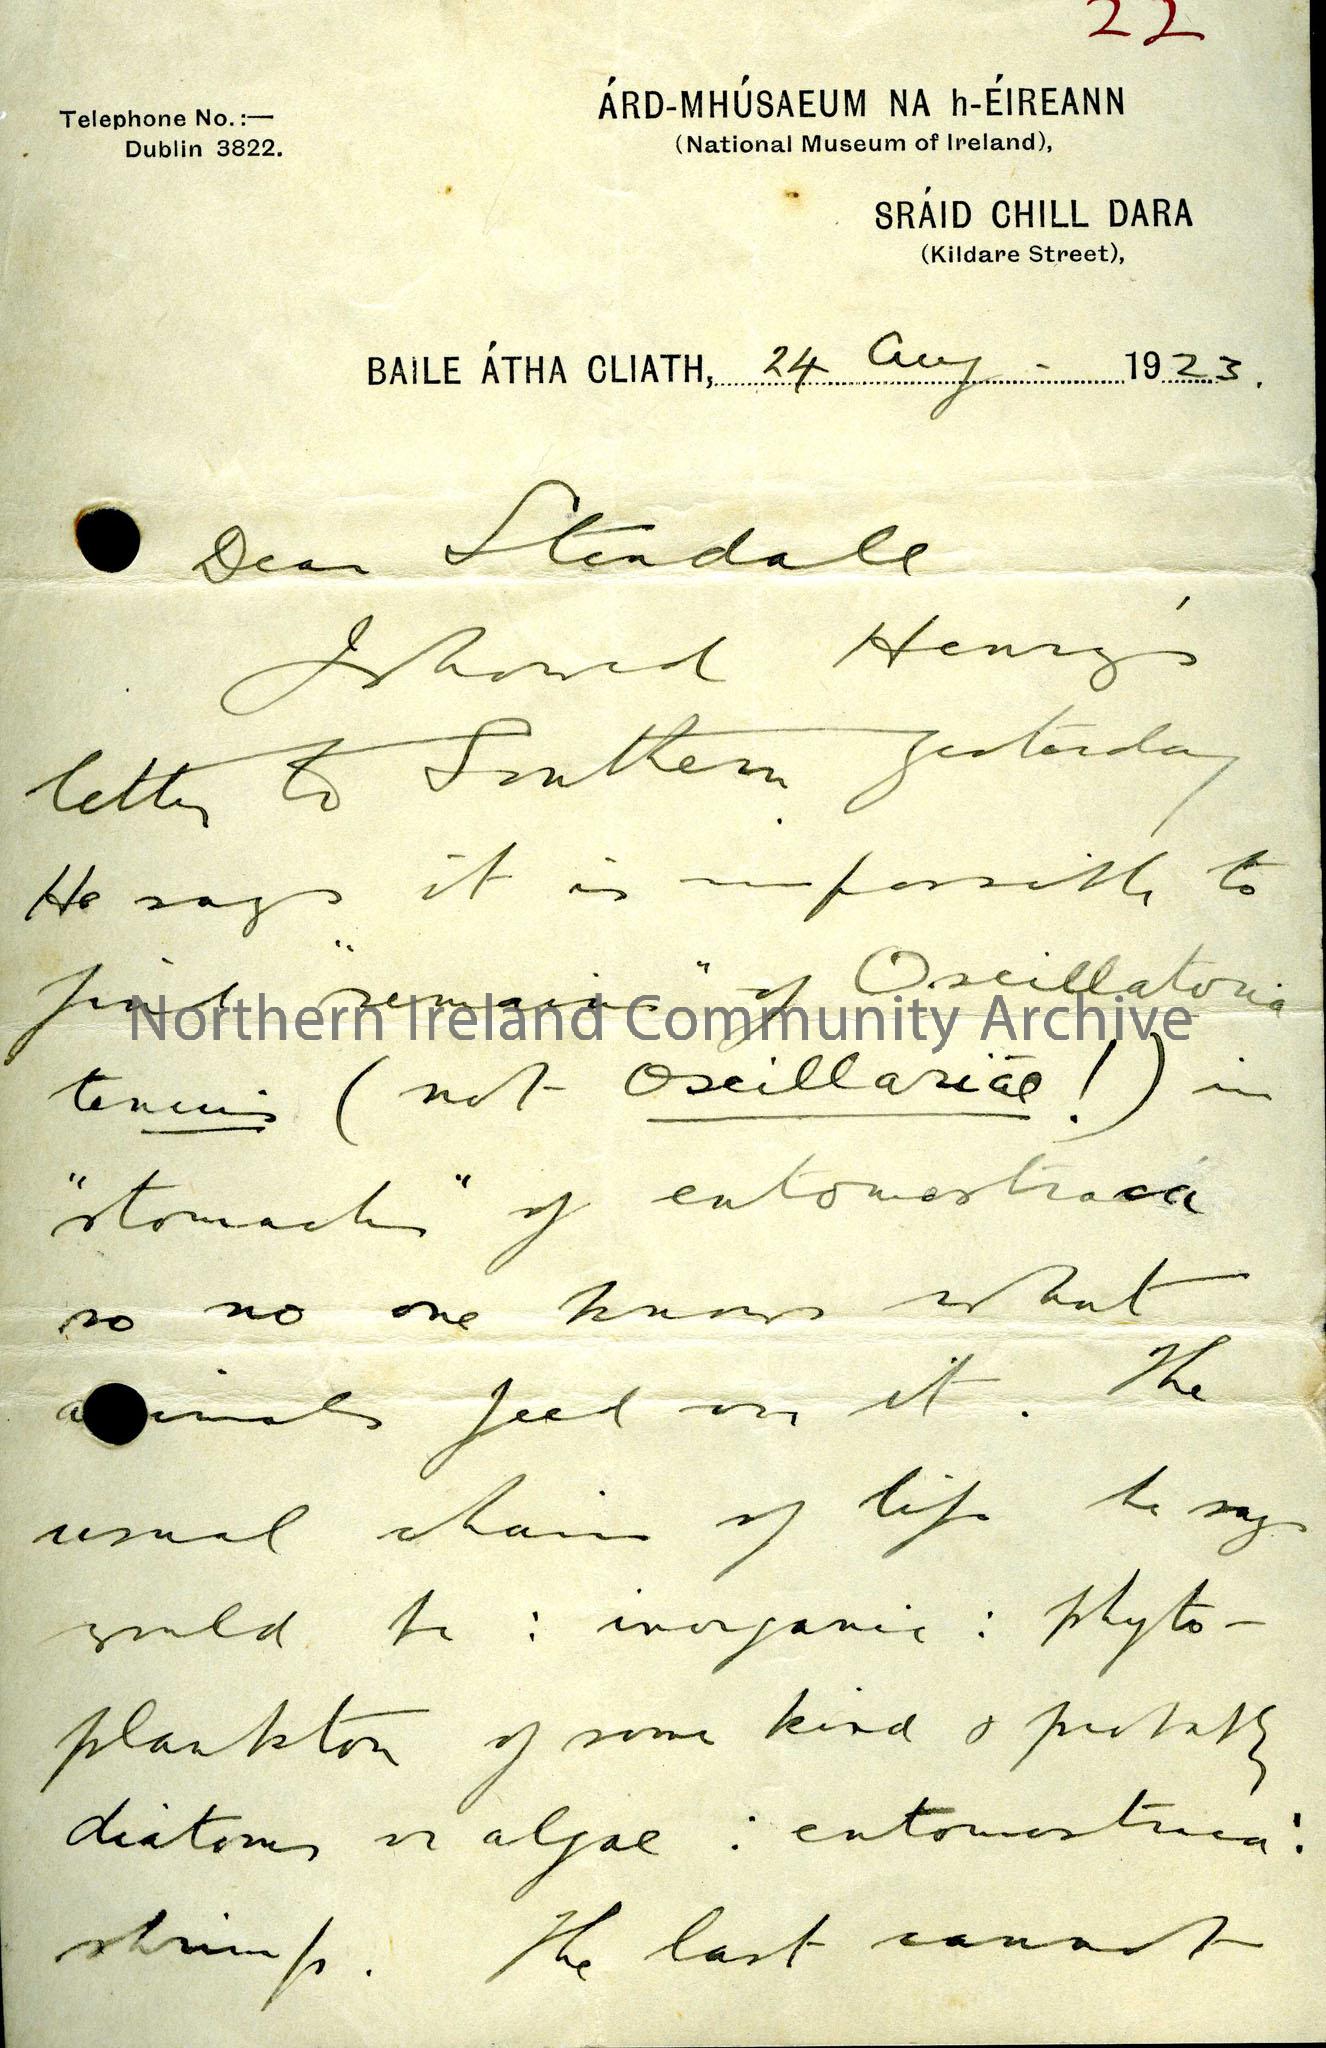 22
Telephone No.:—
Dublin 3822.
ÁRD-MHÚSAEUM NA h-ÉIREANN
(National Museum of Ireland),
SRÁID CHILL DARA
(Kildare Street),
BAILE ÁTHA CLIATH, 24 Aug. 1923.
Dear Stendall
I showed Henry's
letter to Southern yesterday
He says it is impossible to
find "remains" of Oscillatoria
tenuis (not Oscillariae!) in
"stomachs" of entomostraca
so no one knows what
animals feed on it. The
usual chain of life he says
would be : inorganic : phyto-
plankton of some kind & probably
diatoms or algae : entomostraca :
shrimp. The last cannot
Northern Ireland Community Archive